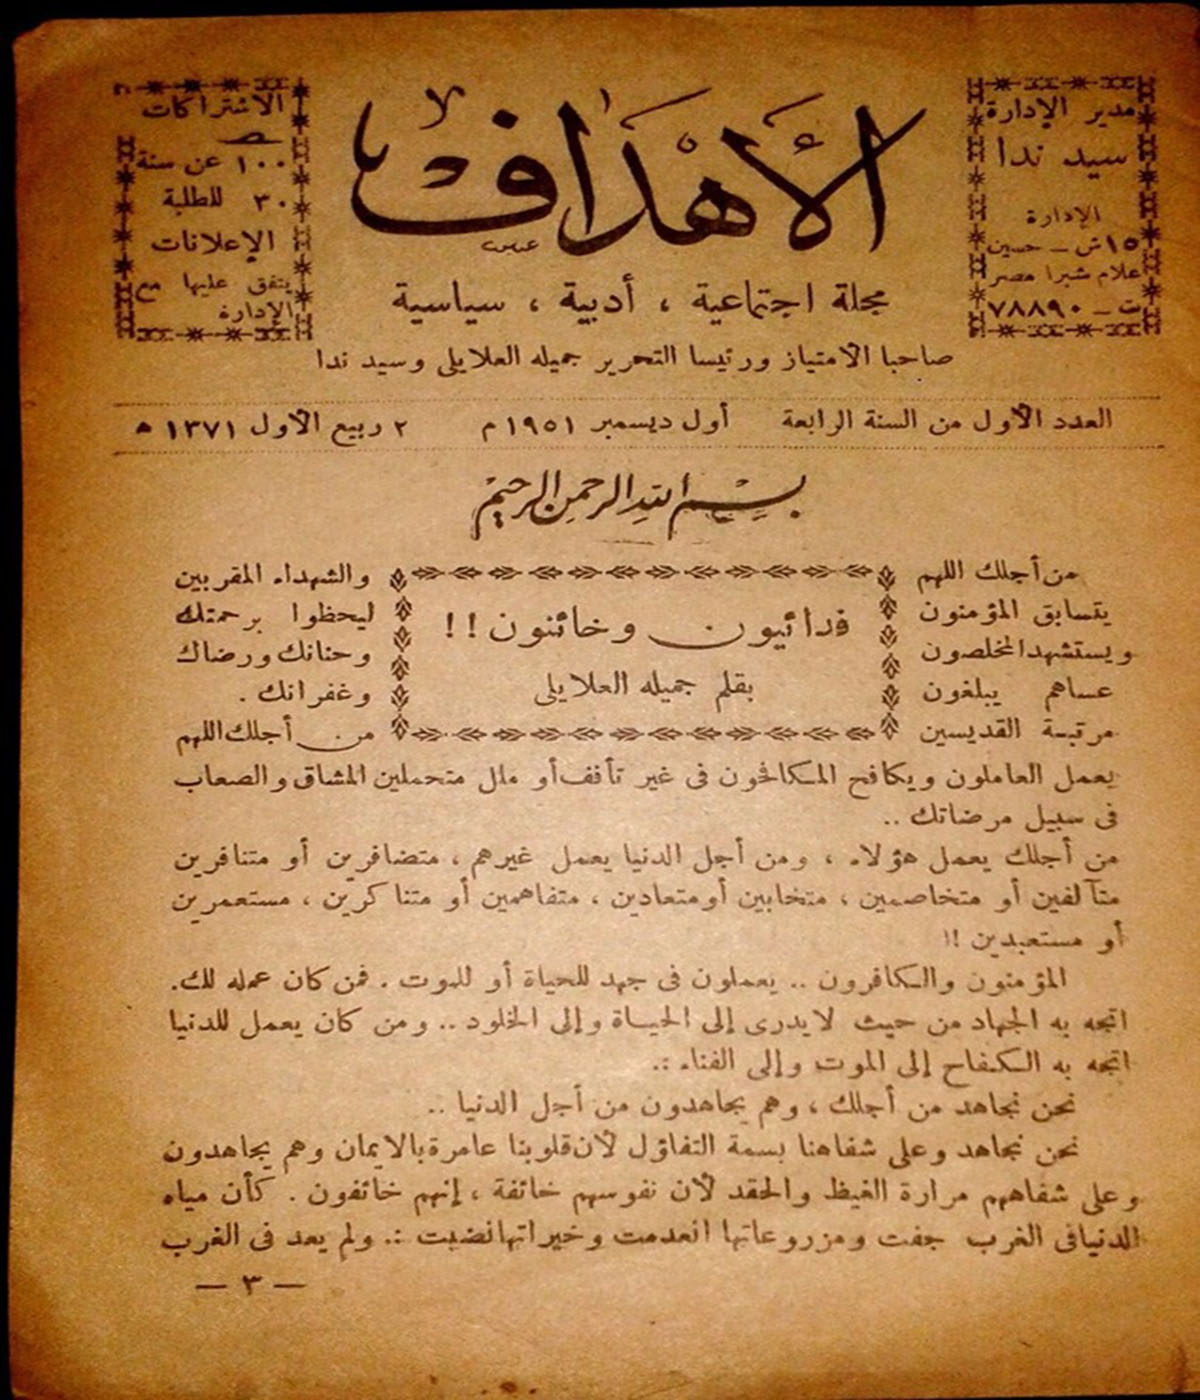 مدير الإدارة
سيد ندا
الإدارة
١٥ ش ــ حسين
علام شبرا مصر
ت ــ ٧٨٨٩٠
الأهداف
مجلة اجتماعية ، أدبية ، سياسية
صاحبا الامتياز ورئيسا التحرير جميله العلايلى وسيد ندا
الاشتراكات
١٠٠ عن سنة
٣٠ للطلبة
الإعلانات
يتفق عليها مع
الإدارة
العدد الأول من السنة الرابعة أول ديسمبر ١٩٥١ م ٢ ربيع الأول ١٣٧١ ه
بسم الله الرحمن الرحيم
فدائيون وخائنون !!
بقلم جميله العلايلى
من أجلك اللهم
يتسابق المؤمنون
ويستشهد المخلصون
عساهم يبلغون
مرتبة القديسين
والشهداء المقربين
ليحظوا برحمتك
وحنانك ورضاك
وغفرانك .
من أجلك اللهم
يعمل العاملون ويكافح المكافحون فى غير تأفف أو ملل متحملين المشاق والصعاب
فى سبيل مرضاتك ..
من أجلك يعمل هؤلاء ، ومن أجل الدنيا يعمل غيرهم ، متضافرين أو متنافرين
متآلفين أو متخاصمين ، متحابين أو متعادين ، متفاهمين أو متناكرين ، مستعمرين
أو مستعبدين !!
المؤمنون والكافرون .. يعملون فى جهد للحياة أو للموت . فمن كان عمله لك.
اتجه به الجهاد من حيث لا يدرى إلى الحياة وإلى الخلود .. ومن كان يعمل للدنيا
اتجه به الكفاح إلى الموت وإلى الفناء .:
نحن نجاهد من أجلك ، وهم يجاهدون من أجل الدنيا ..
نحن نجاهد وعلى شفاهنا بسمة التفاؤل لأن قلوبنا عامرة بالايمان وهم يجاهدون
وعلى شفاههم مرارة الغيظ والحقد لأن نفوسهم خائفة ، إنهم خائفون . كأن مياه
الدنيا فى الغرب جفت ومزروعاتها انعدمت وخيراتها نضبت .: ولم يعد فى الغرب
— ٣ —